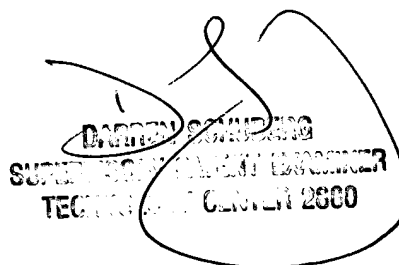 DARREN SCHUBERG
SUPERVISORY PATENT EXAMINER
TECHNOLOGY CENTER 2600